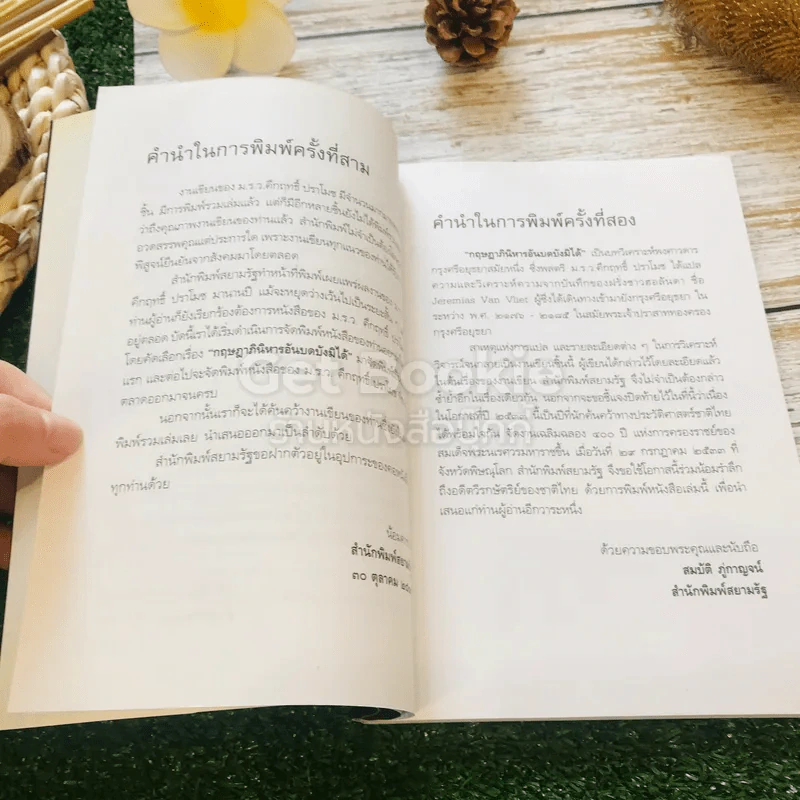 คำนำในการพิมพ์ครั้งที่สาม
งานเขียนของ ม.ร.ว.คึกฤทธิ์ ปราโมช มีจำนวนมาก
ชิ้น มีการพิมพ์รวมเล่มแล้ว แต่ก็มีอีกหลายชิ้นยังไม่ได้
ว่าถึงคุณภาพงานเขียนของท่านแล้ว สำนักพิมพ์ไม่จำเป็นต้อง
อวดสรรพคุณแต่ประการใด เพราะงานเขียนทุกแนวของท่านได้
พิสูจน์ยืนยันจากสังคมมาโดยตลอด
สำนักพิมพ์สยามรัฐทำหน้าที่พิมพ์เผยแพร่ผลงานของ
คึกฤทธิ์ ปราโมช มานานปี แม้จะหยุดว่างเว้นไปเป็นระยะสั้น
ท่านผู้อ่านก็ยังเรียกร้องต้องการหนังสือของ ม.ร.ว. คึกฤทธิ์
อยู่ตลอด บัดนี้เราได้เริ่มดำเนินการจัดพิมพ์หนังสือของท่าน
โดยคัดเลือกเรื่อง "กฤษฎาภินิหารอันบดบังมิได้"
แรก และต่อไปจะจัดพิมพ์หนังสือของ ม.ร.ว. คึกฤทธิ์
ตลาดออกมาจนครบ
นอกจากนั้นเราก็จะได้ค้นคว้างานเขียนของท่าน
พิมพ์รวมเล่มเลย นำเสนอออกมาเป็นลำดับด้วย
สำนักพิมพ์สยามรัฐขอฝากตัวอยู่ในอุปการะของ
ทุกท่านด้วย
สำนักพิมพ์
๓๐ ตุลาคม
คำนำในการพิมพ์ครั้งที่สอง
"กฤษฎาภินิหารอันบดบังมิได้" เป็นบทวิเคราะห์พงศาวดาร
กรุงศรีอยุธยาสมัยหนึ่ง ซึ่งพลตรี ม.ร.ว.คึกฤทธิ์ ปราโมช ได้แปล
ความและวิเคราะห์ความจากบันทึกของฝรั่งชาวฮอลันดา ชื่อ
Jeremias Van Vliet ผู้ซึ่งได้เดินทางเข้ามายังกรุงศรีอยุธยา ใน
ระหว่าง พ.ศ. ๒๑๗๖ - ๒๑๘๕ ในสมัยพระเจ้าปราสาททองครอง
กรุงศรีอยุธยา
สาเหตุแห่งการแปล และรายละเอียดต่าง ๆ ในการวิเคราะห์
วิจารณ์จนกลายเป็นงานเขียนชิ้นนี้ ผู้เขียนได้กล่าวไว้โดยละเอียดแล้ว
ในต้นเรื่องของงานเขียน สำนักพิมพ์สยามรัฐ จึงไม่จำเป็นต้องกล่าว
ซ้ำอีกในเรื่องเดียวกัน นอกจากจะขอชี้แจงปิดท้ายไว้ในที่นี้ว่าเนื่อง
ในโอกาสที่ปี ๒๕๓๓ นี้เป็นปีที่นักค้นคว้าทางประวัติศาสตร์ชาติไทย
ได้พร้อมใจกัน จัดงานเฉลิมฉลอง ๔๐๐ ปี แห่งการครองราชย์ของ
สมเด็จพระนเรศวรมหาราชขึ้น เมื่อวันที่ ๒๙ กรกฎาคม ๒๕๓๓ ที่
จังหวัดพิษณุโลก สำนักพิมพ์สยามรัฐ จึงขอใช้โอกาสนี้ร่วมน้อมรำลึก
ถึงอดีตวีรกษัตริย์ของชาติไทย ด้วยการพิมพ์หนังสือเล่มนี้ เพื่อนำ
เสนอแก่ท่านผู้อ่านอีกวาระหนึ่ง
ด้วยความขอบพระคุณและนับถือ
สมบัติ ภู่กาญจน์
สำนักพิมพ์สยามรัฐ
Get Bookie
ร้านหนังสือบุ๊คกี้